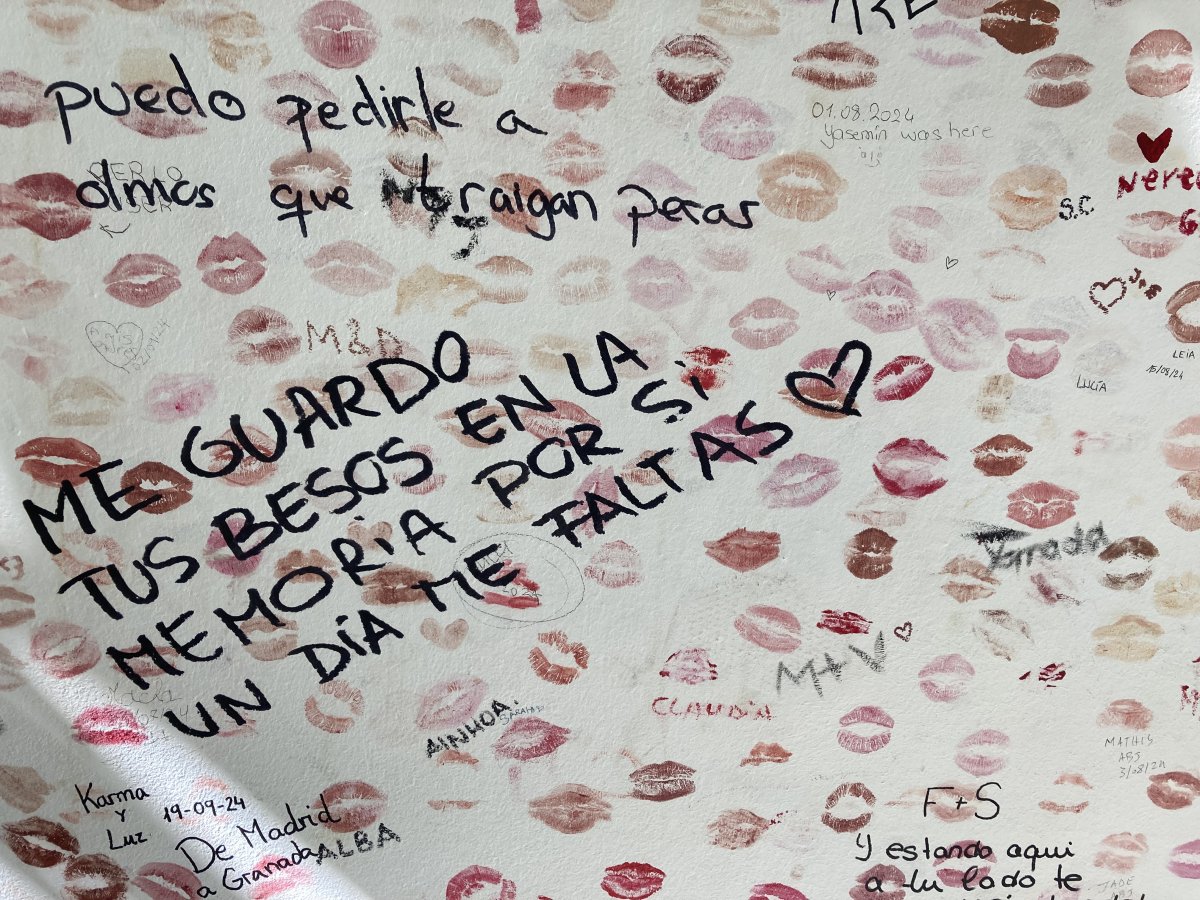 puedo pedirle a
olmos que traigan peras
01.08.2024
Yasemin was here
S.C
LEIA
15/08/24
LUCÍA
M&D
ME GUARDO
TUS BESOS EN LA
MEMORiA POR Si
UN DíA ME FALTAS
Grada
M+V
CLAUDiA
AINHOA
MATHIS
ABJ
3/08/24
Karma
Y
Luz
19-09-24
De Madrid
a Granada
ALBA
F+S
Y estando aqui
a tu lado te
JADE